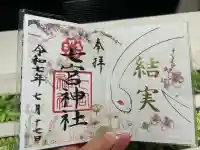 結実
奉拝
七宮神社
令和七年七月十七日